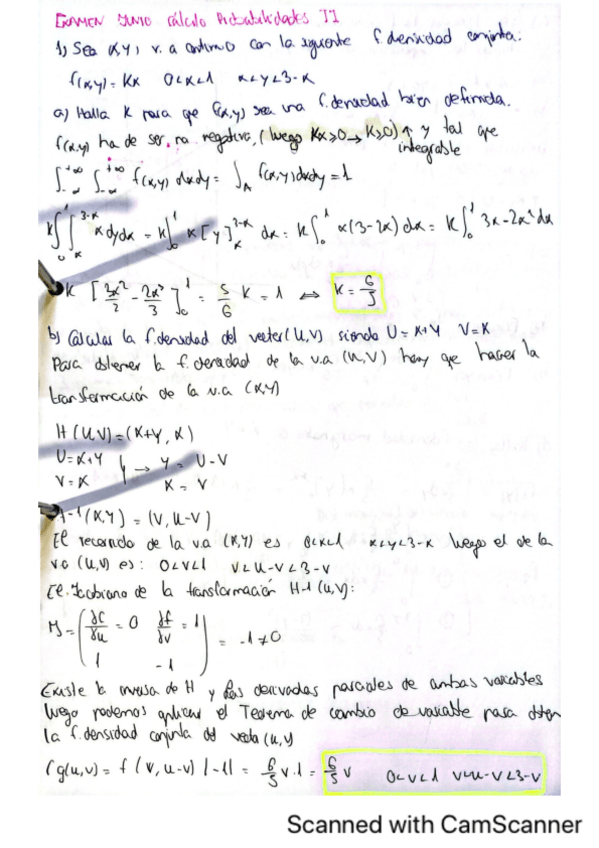 EXAMEN JUNIO Cálculo Probabilidades II
1) Sea (X,Y) v.a continuo con la siguiente f densidad conjunta:
f(x,y) = Kx 0<x<1 x<y<3-x
a) Halla K para que f(x,y) sea una f. densidad bien definida.
f(x,y) ha de ser no negativa, (luego Kx≥0 → K≥0) y tal que
integrable
∫-∞+∞ ∫-∞+∞ f(x,y) dxdy = ∫A f(x,y)dxdy = 1
K∫01∫x3-x x dydx = K∫01 x [y]x3-x dx = K∫01 x(3-2x) dx = K∫01 3x-2x² dx
K [3x²/2 - 2x³/3]01 = 5/6 K = 1 ⇔ K = 6/5
b) Calcular la f. densidad del vector (U,V) siendo U = X+Y V=X
Para obtener la f. densidad de la v.a (U,V) hay que hacer la
transformación de la v.a (X,Y)
H(U,V) = (X+Y, X)
U = X+Y } → Y = U-V
V = X X = V
H-1(X,Y) = (V, U-V)
El recorrido de la v.a (X,Y) es 0<x<1 x<y<3-x luego el de la
v.a (u,v) es: 0<v<1 v<u-v<3-v
El Jacobiano de la transformación H-1(u,v):
= ( ∂f/∂u = 0 ∂f/∂v = 1
1 -1 ) = -1≠0
Existe la inversa de H y las derivadas parciales de ambas variables
luego podemos aplicar el Teorema de cambio de variable para
la f. densidad conjunta del (u,v)
g(u,v) = f(v,u-v) |-1| = 6/5 v·1 = 6/5 v 0<v<1 v<u-v<3-v
Scanned with CamScanner